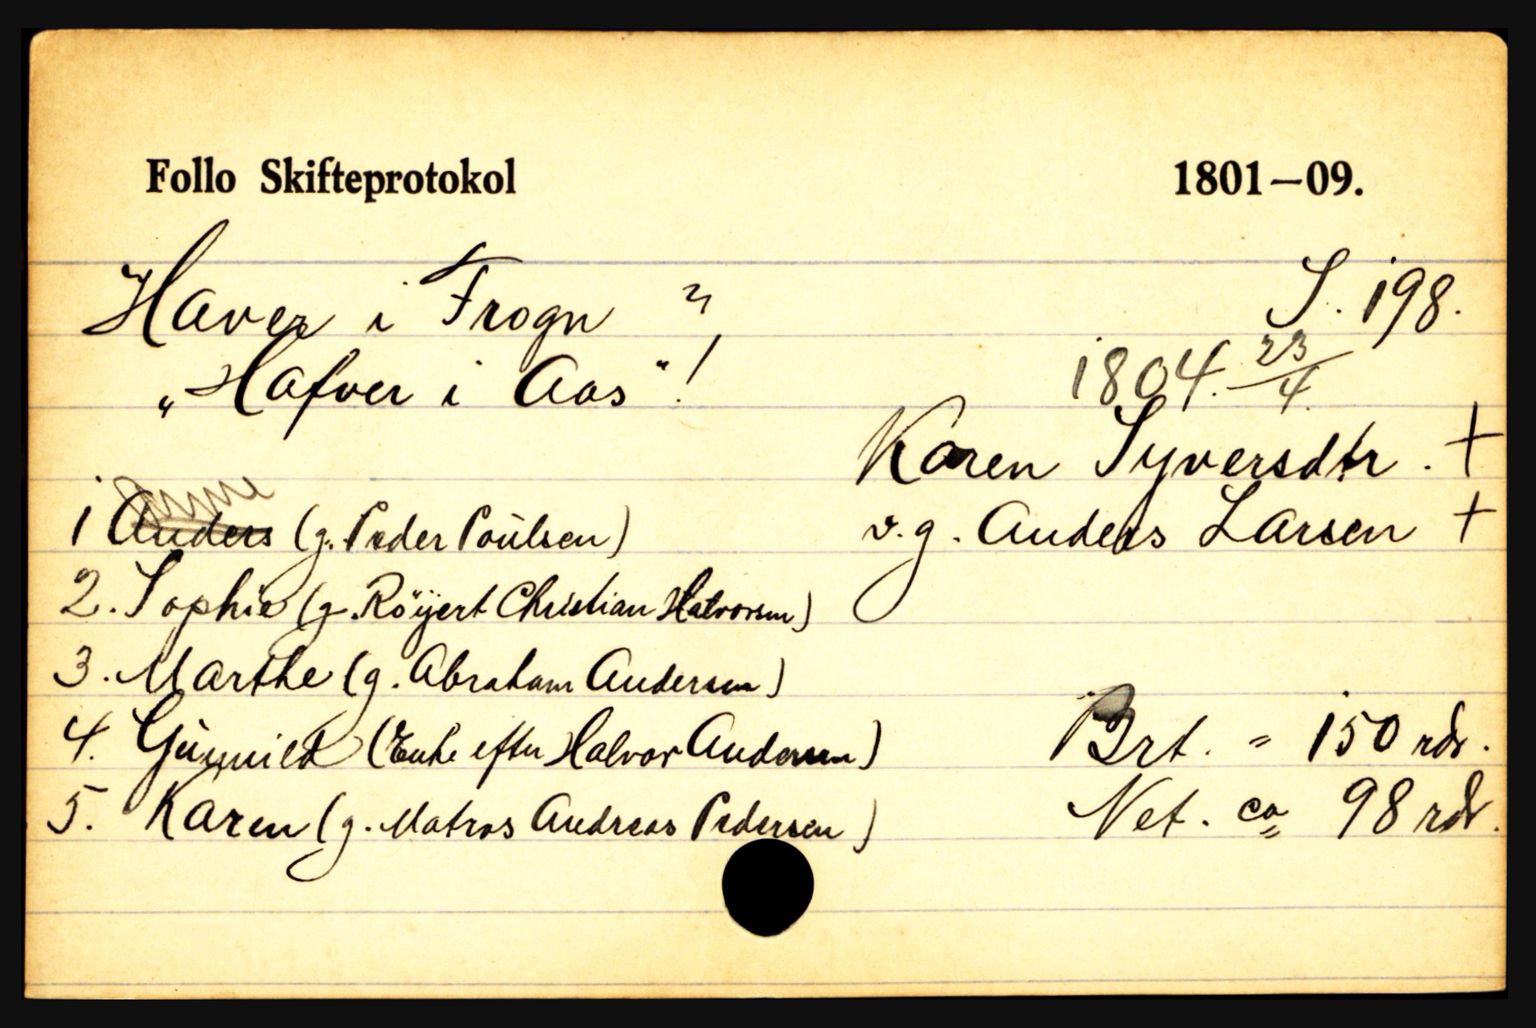 Follo Skifteprotokol 1801—09.
Haver i Frogn ? S. 198.
„Hafver i Aas“! 1804. 23/4.
Karen Syversdtr. +
v.g. Anders Larsen +
1 Anders Anne (g. Peder Poülsen)
2. Sophie (g. Röyert Christian Halvorsen)
3. Marthe (g. Abraham Andersen)
4. Günnild (Enke efter Halvor Andersen) Brt. = 150 rdr.
5. Karen (g. Matros Andreas Pedersen) Net. ca 98 rdr.